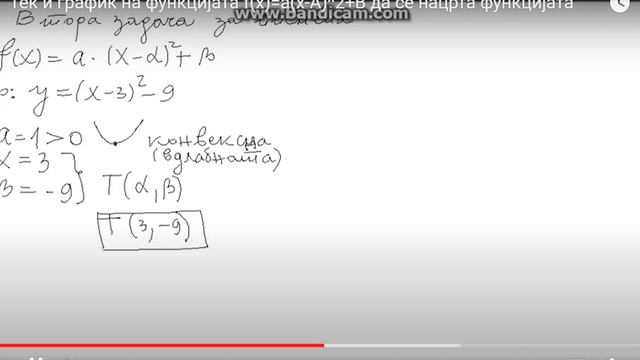 Тек и график на функцијата f(x)=a(x-A)^2+B да се нацрта функцијата
www.Bandicam.com
Втора задача за
f(x) = a · (x-α)² + β
: y = (x-3)² - 9
a = 1 > 0
конвексна
(вдлабната)
x = 3
β = -9
T(α, β)
T(3, -9)